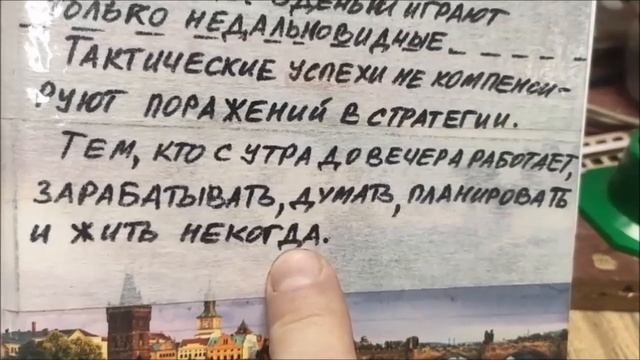 ИГРАЮТ
ТОЛЬКО НЕДАЛЬНОВИДНЫЕ
ТАКТИЧЕСКИЕ УСПЕХИ НЕ КОМПЕНСИ-
РУЮТ ПОРАЖЕНИЙ В СТРАТЕГИИ.
ТЕМ, КТО С УТРА ДО ВЕЧЕРА РАБОТАЕТ,
ЗАРАБАТЫВАТЬ, ДУМАТЬ, ПЛАНИРОВАТЬ
И ЖИТЬ НЕКОГДА.